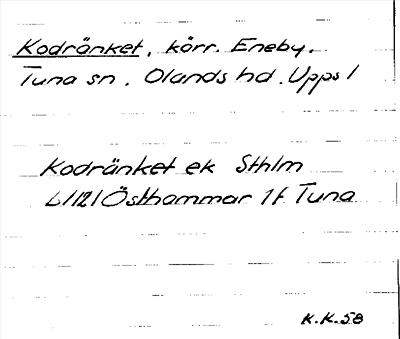 Kodränket, kärr. Eneby.
Tuna sn. Olands hd. Upps l
Kodränket ek Sthlm
Östhammar 1f Tuna
K.K.58